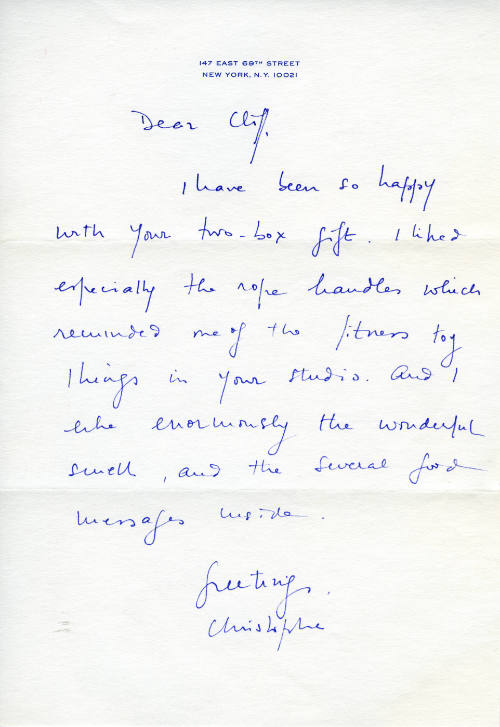 147 EAST 69TH STREET
NEW YORK, N.Y. 10021
Dear Clif.
I have been so happy
with your two-box gift. I liked
especially the rope handles which
reminded me of the fitness toy
things in your studio. And I
like enormously the wonderful
smell, and the several good
messages inside.
Greetings.
Christophe